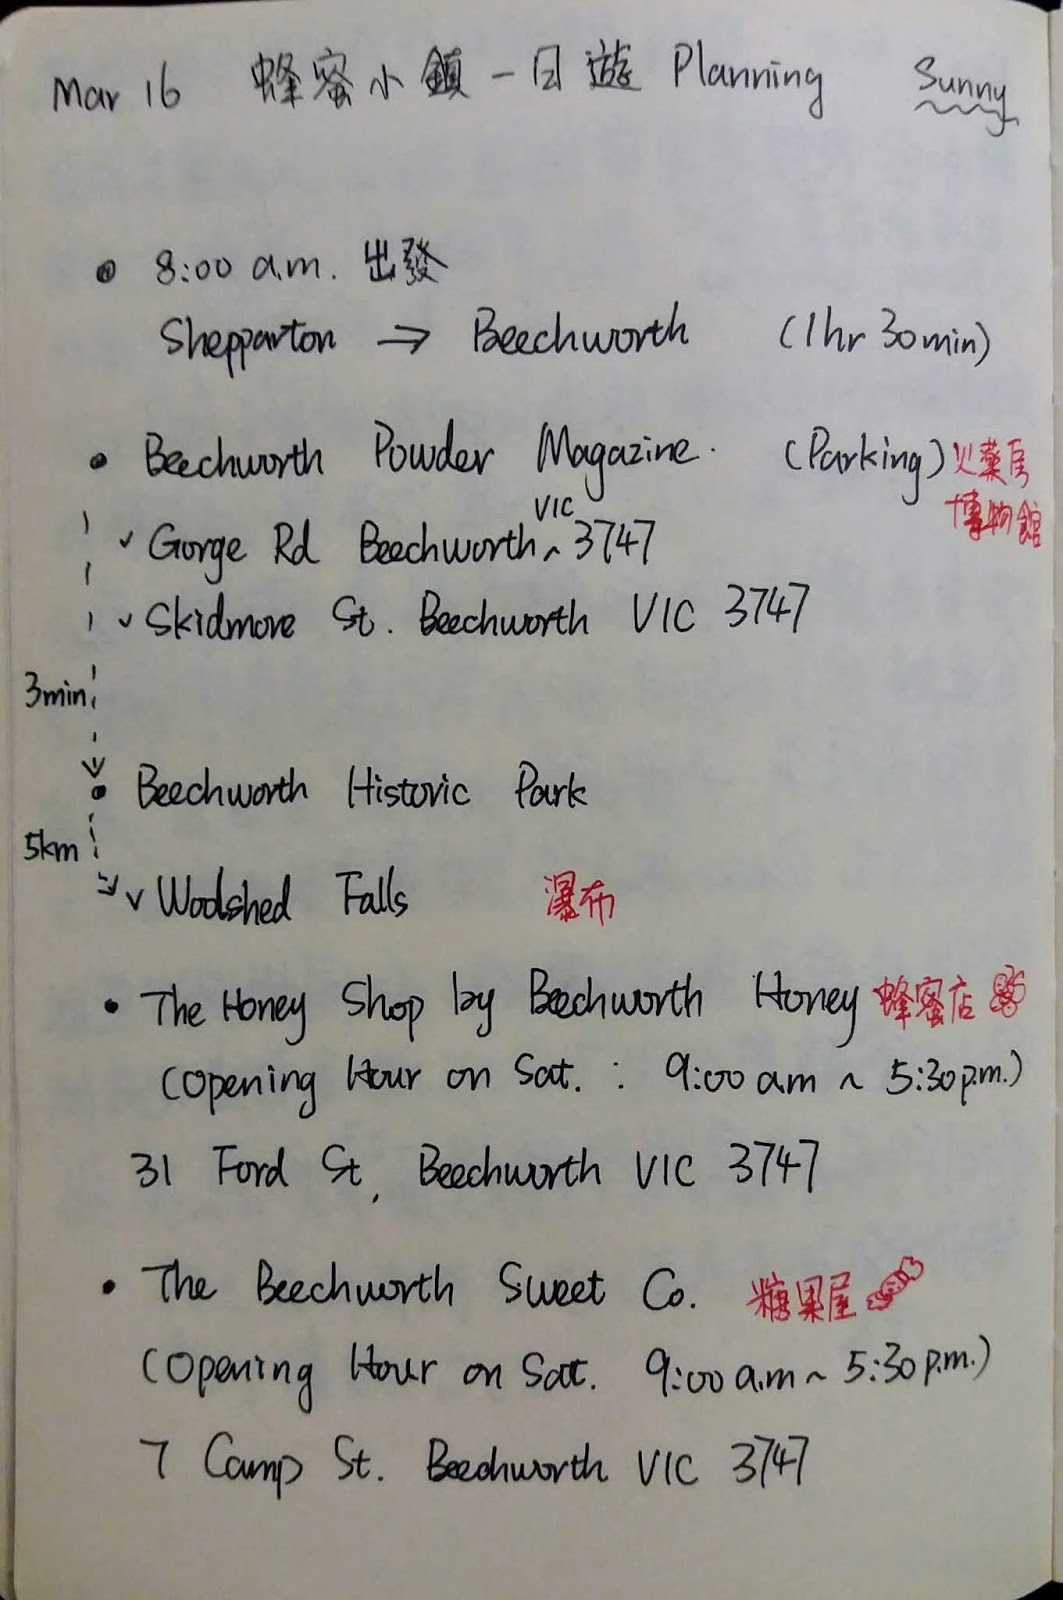 Mar 16 蜂蜜小鎮一日遊 Planning Sunny
8:00 a.m. 出發
Shepparton → Beechworth (1hr 30min)
Beechworth Powder Magazine. (Parking) 火藥房
博物館
VIC
✓ Gorge Rd Beechworth ^ 3747
✓ Skidmore St. Beechworth VIC 3747
3min
Beechworth Historic Park
5km
✓ Woolshed Falls 瀑布
The Honey Shop by Beechworth Honey 蜂蜜店
(Opening Hour on Sat. : 9:00 am ~ 5:30 p.m.)
31 Ford St, Beechworth VIC 3747
The Beechworth Sweet Co. 糖果屋
(Opening Hour on Sat. 9:00 a.m ~ 5:30 p.m.)
7 Camp St. Beechworth VIC 3747